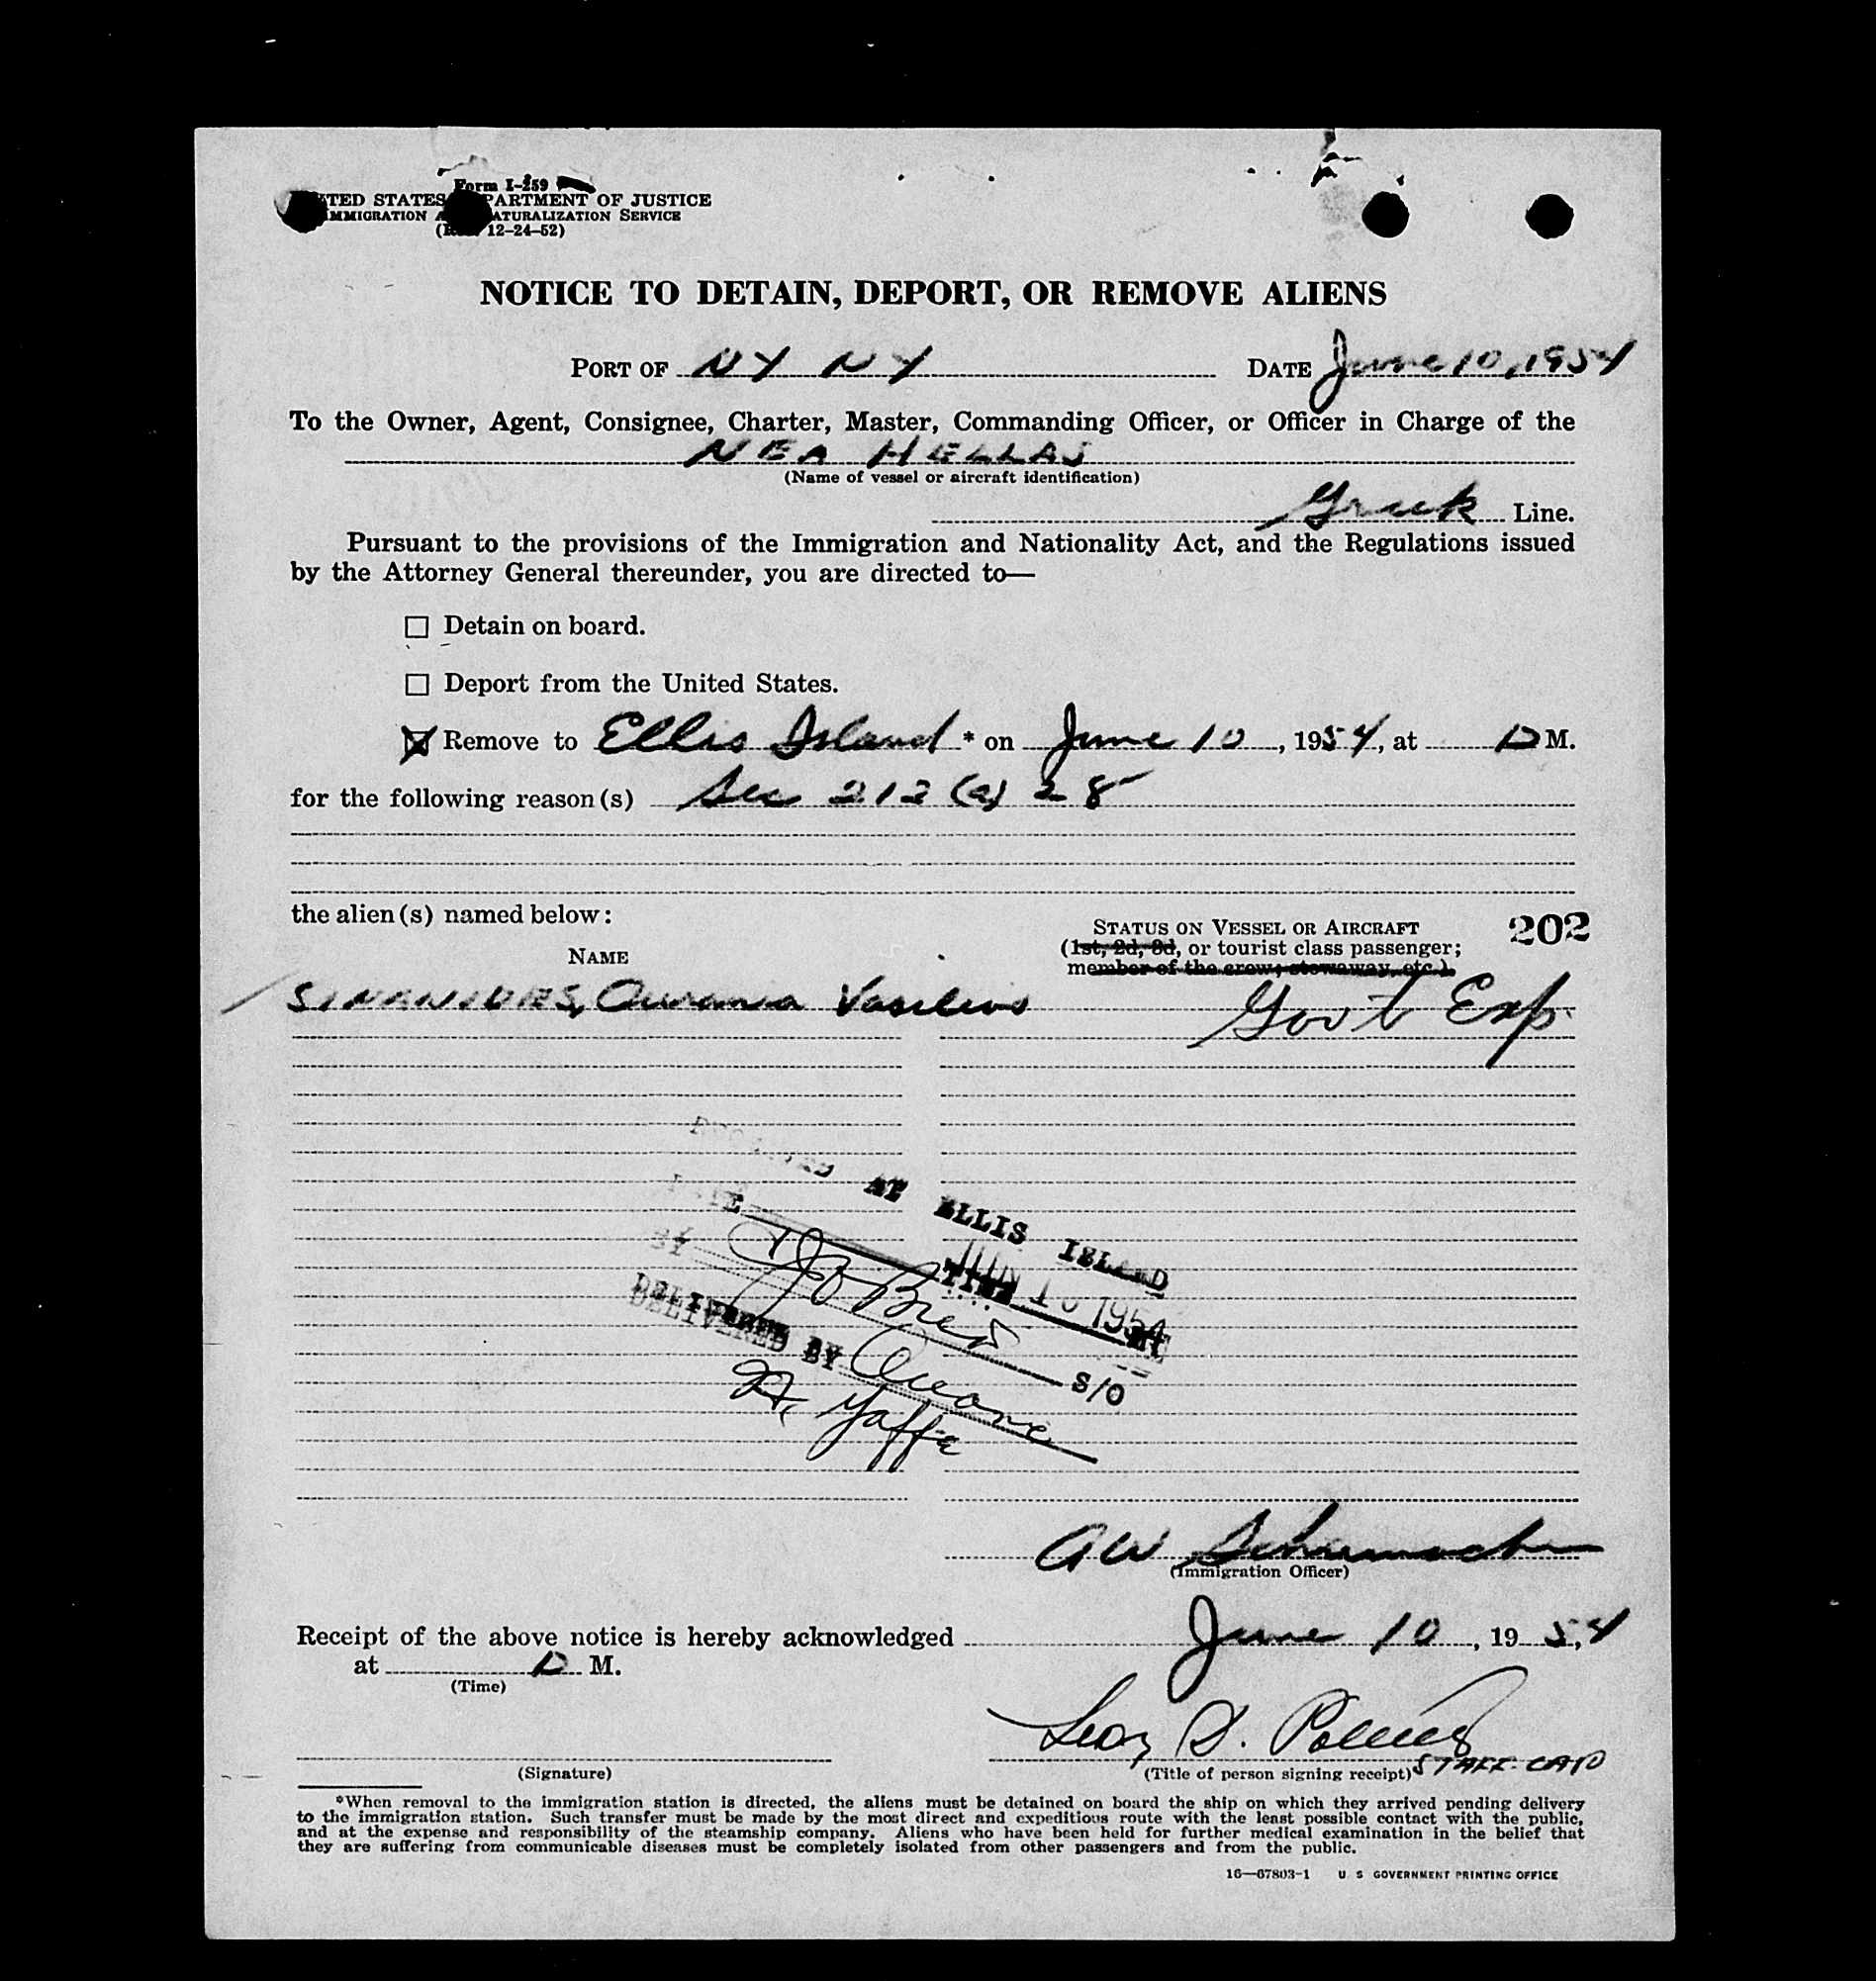 Form I-259
UNITED STATES DEPARTMENT OF JUSTICE
IMMIGRATION AND NATURALIZATION SERVICE
(Rev. 12-24-52)
NOTICE TO DETAIN, DEPORT, OR REMOVE ALIENS
PORT OF NY NY DATE June 10, 1954
To the Owner, Agent, Consignee, Charter, Master, Commanding Officer, or Officer in Charge of the
NEA HELLAS
(Name of vessel or aircraft identification)
Greek Line.
Pursuant to the provisions of the Immigration and Nationality Act, and the Regulations issued
by the Attorney General thereunder, you are directed to—
Detain on board.
Deport from the United States.
Remove to Ellis Island * on June 10, 1954, at P M.
for the following reason(s) Sec 212 (a) 28
the alien(s) named below:
STATUS ON VESSEL OR AIRCRAFT 202
NAME
(1st, 2d, 3d, or tourist class passenger;
member of the crew; stowaway, etc.).
SINANIDES, Ourania Vasilios
Govt Exp.
RECEIVED AT ELLIS ISLAND
DATE TIME JUN 10 1954 M
BY S/O
DELIVERED BY
H. Yaffe
AW Schumacher
(Immigration Officer)
Receipt of the above notice is hereby acknowledged June 10, 1954
at P M.
(Time)
STAFF CAP
(Signature) (Title of person signing receipt)
*When removal to the immigration station is directed, the aliens must be detained on board the ship on which they arrived pending delivery
to the immigration station. Such transfer must be made by the most direct and expeditious route with the least possible contact with the public,
and at the expense and responsibility of the steamship company. Aliens who have been held for further medical examination in the belief that
they are suffering from communicable diseases must be completely isolated from other passengers and from the public.
16—67803-1 U S GOVERNMENT PRINTING OFFICE